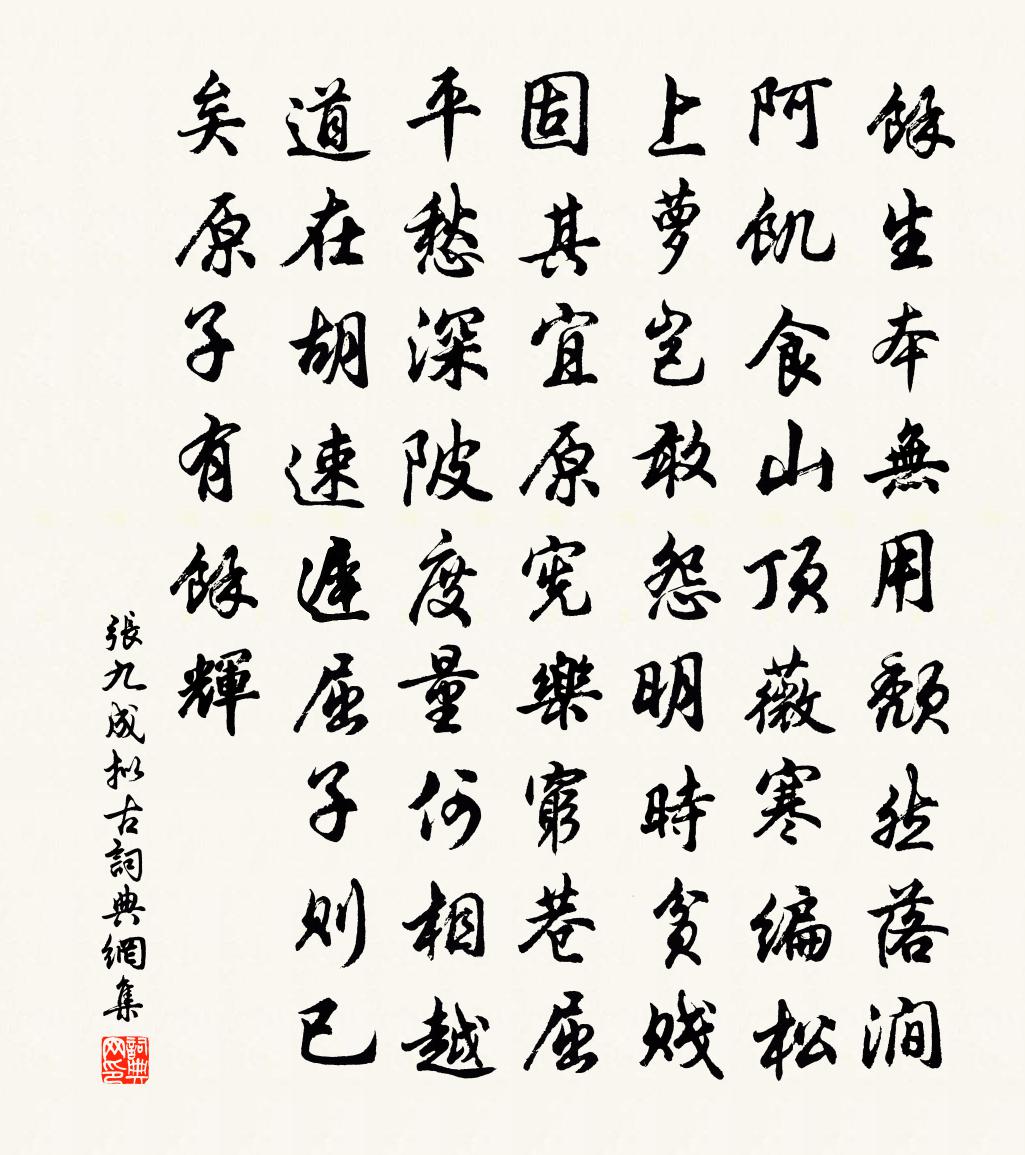 餘生本無用頽然落澗
阿飢食山頂薇寒編松
上蘿豈敢怨明時貧賤
固其宜原憲樂窮巷屈
平愁深陂度量何相越
道在胡速遲屈子則已
矣原子有餘輝
張九成拟古詞典網集
詞典网印